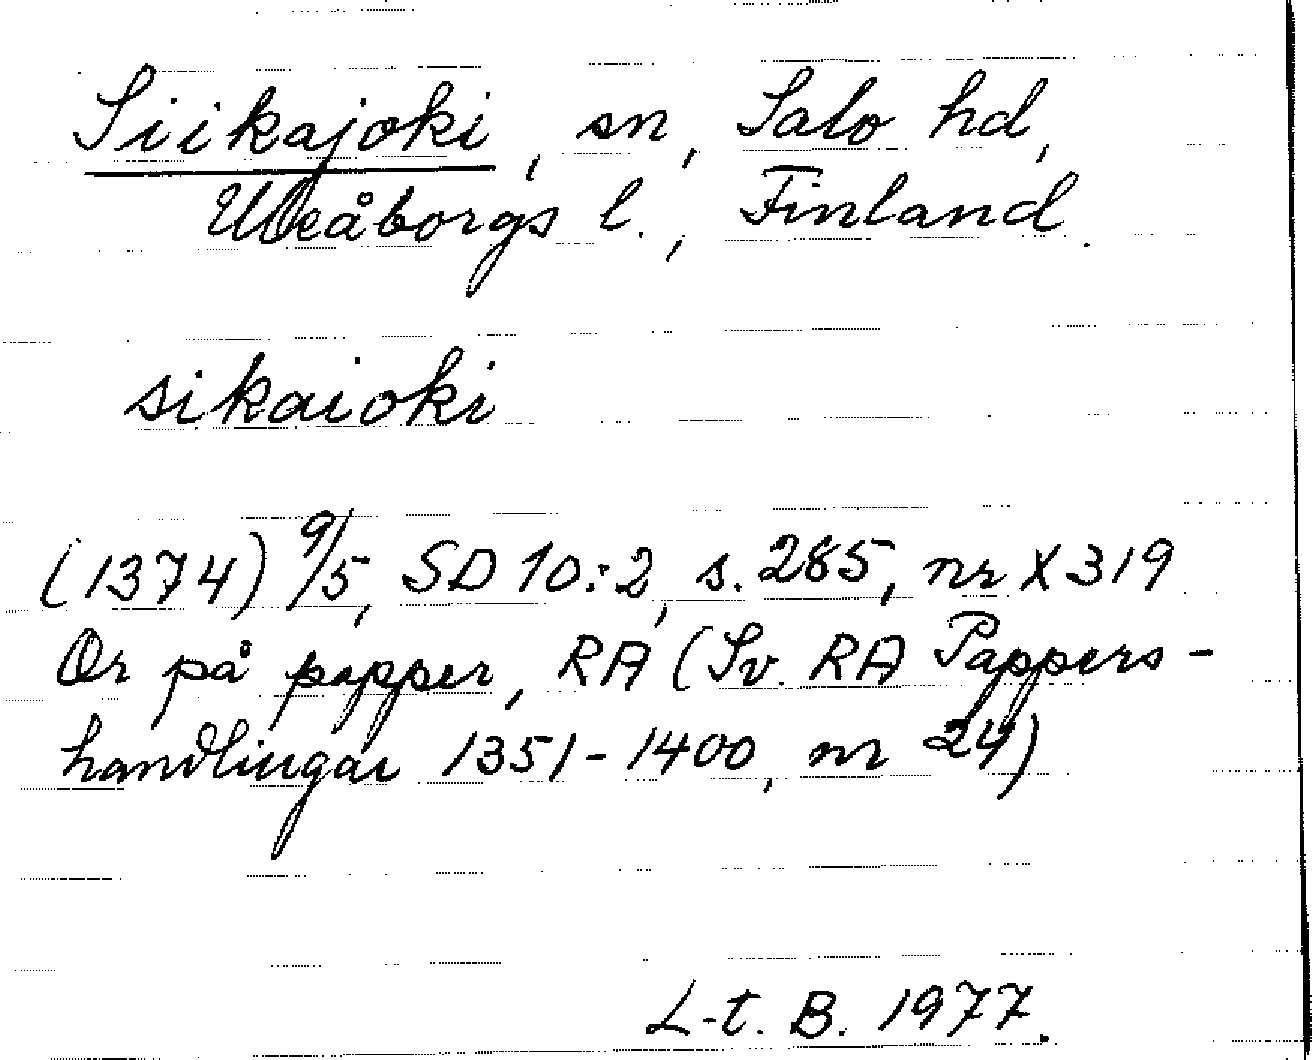 Siikajoki, sn, Salo hd,
Uleåborgs l., Finland.
sikaioki
(1374) 9/5, SD 10:2, s. 285, nr X319
Or på papper, RA (Sv. RA Pappers-
handlingar 1351-1400, nr 24)
L-t. B. 1977.